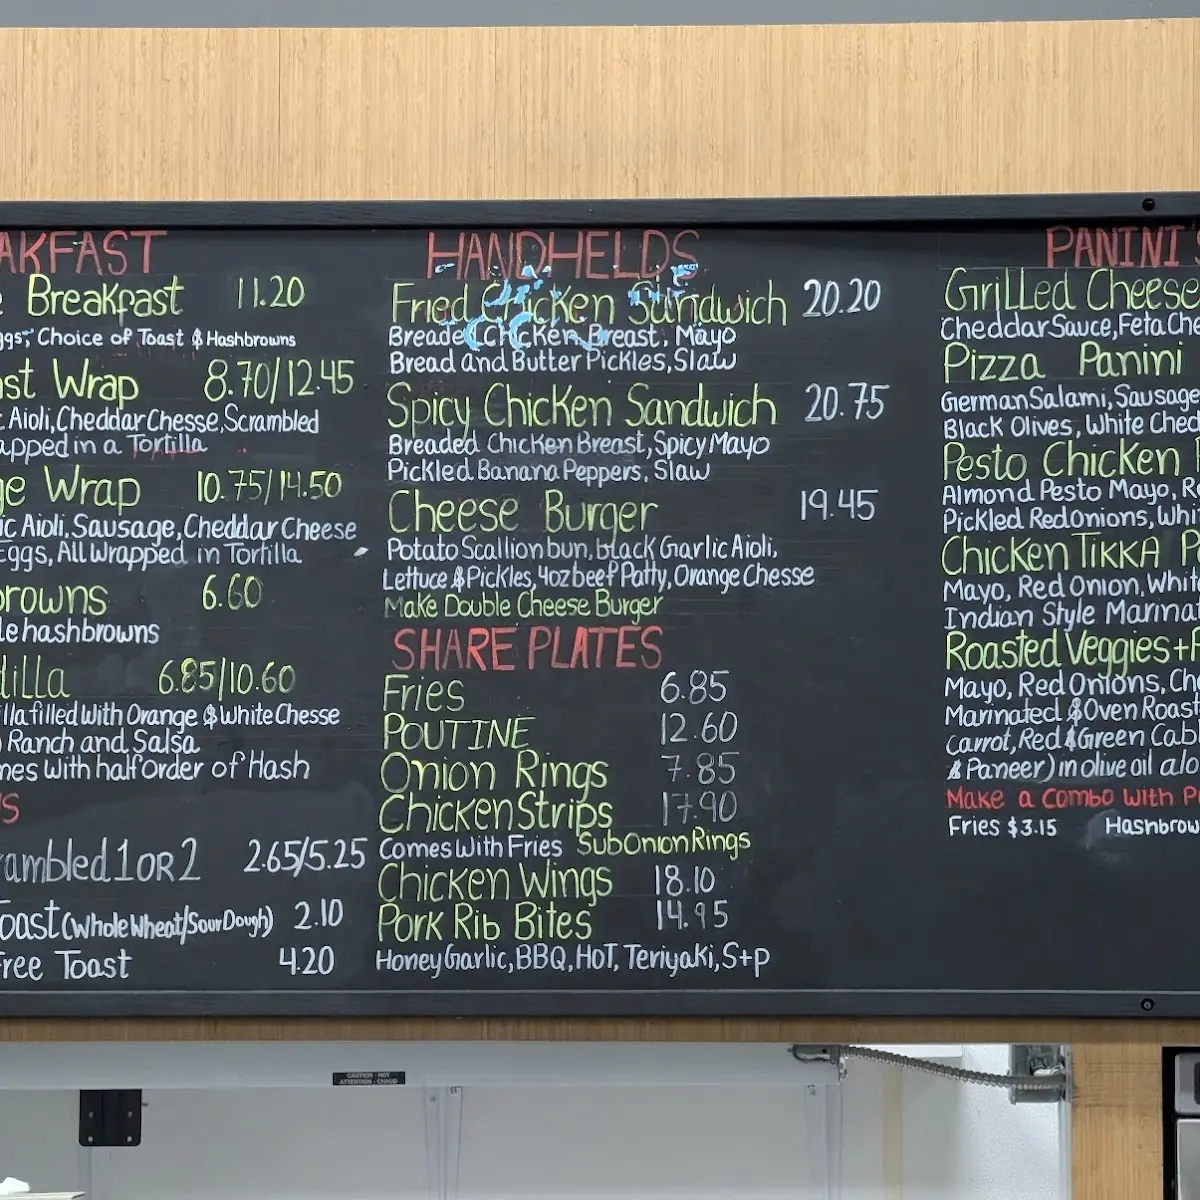 AKFAST
e Breakfast 11.20
ggs, Choice of Toast & Hashbrowns
st Wrap 8.70/12.45
c Aioli, Cheddar Chesse, Scrambled
apped in a Tortilla
ge Wrap 10.75/14.50
ic Aioli, Sausage, Cheddar Cheese
Eggs, All Wrapped in Tortilla
browns 6.60
le hashbrowns
dilla 6.85/10.60
illa filled with Orange & White Chesse
) Ranch and Salsa
mes with half Order of Hash
s
rambled 1 OR 2 2.65/5.25
Toast (Whole Wheat/Sour Dough) 2.10
Free Toast 4.20
HANDHELDS
Fried Chicken Sandwich 20.20
Breaded Chicken Breast, Mayo
Bread and Butter Pickles, Slaw
Spicy Chicken Sandwich 20.75
Breaded Chicken Breast, Spicy Mayo
Pickled Banana Peppers, Slaw
Cheese Burger 19.45
Potato Scallion bun, black Garlic Aioli,
Lettuce & Pickles, 4oz beef Patty, Orange Chesse
Make Double Cheese Burger
SHARE PLATES
Fries 6.85
POUTINE 12.60
Onion Rings 7.85
Chicken Strips 17.90
Comes With Fries Sub Onion Rings
Chicken Wings 18.10
Pork Rib Bites 14.95
Honey Garlic, BBQ, HOT, Teriyaki, S+p
PANINI'S
Grilled Cheese
Cheddar Sauce, Feta Che
Pizza Panini
German Salami, Sausage
Black Olives, White Ched
Pesto Chicken
Almond Pesto Mayo, Re
Pickled Red Onions, Whi
Chicken TIKKA P
Mayo, Red Onion, Whit
Indian Style Marina
Roasted Veggies +P
Mayo, Red Onions, Che
Marinated & Oven Roast
Carrot, Red & Green Cabb
& Paneer) in olive oil alo
Make a Combo With P
Fries $3.15 Hashbrow
CAUTION - HOT
ATTENTION - CHAUD